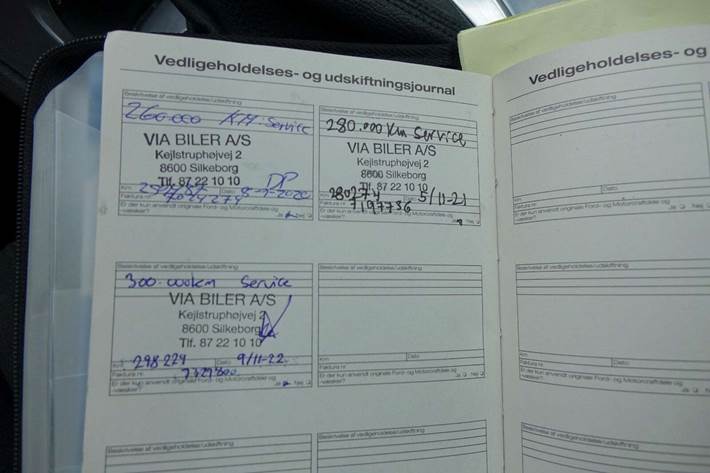 Vedligeholdelses- og udskiftningsjournal
Beskrivelse af vedligeholdelse/udskiftning
260.000 KM: Service
VIA BILER A/S
Kejlstruphøjvej 2
8600 Silkeborg
Tlf. 87 22 10 10
DP
Km: Dato: 8-7-2020
Faktura nr.
Er der kun anvendt originale Ford- og Motorcraftdele og
-væsker? Ja Nej
280.000 Km Service
VIA BILER A/S
Kejlstruphøjvej 2
8600 Silkeborg
Tlf. 87 22 10 10
5/11-21
Faktura nr. 7197736
Er der kun anvendt originale Ford- og Motorcraftdele og
-væsker? Ja Nej
Beskrivelse af vedligeholdelse/udskiftning
300.000km Service
VIA BILER A/S
Kejlstruphøjvej 2
8600 Silkeborg
Tlf. 87 22 10 10
Km: 298.229 Dato: 9/11-22.
Faktura nr.
Er der kun anvendt originale Ford- og Motorcraftdele og
-væsker? Ja Nej
Beskrivelse af vedligeholdelse/udskiftning
Km: Dato:
Faktura nr.
Er der kun anvendt originale Ford- og Motorcraftdele og
-væsker? Ja Nej
Beskrivelse af vedligeholdelse/udskiftning
Beskrivelse af vedligeholdelse/udskiftning
Vedligeholdelses- og
Beskrivelse af vedligeholdelse/udskiftning
Km: Dato:
Faktura nr.
Er der kun anvendt originale Ford- og Motorcraftdele og
-væsker? Ja
Beskrivelse af vedligeholdelse/udskiftning
Km: Dato:
Faktura nr.
Er der kun anvendt originale Ford- og Motorcraftdele og
-væsker? Ja
Beskrivelse af vedligeholdelse/udskiftning